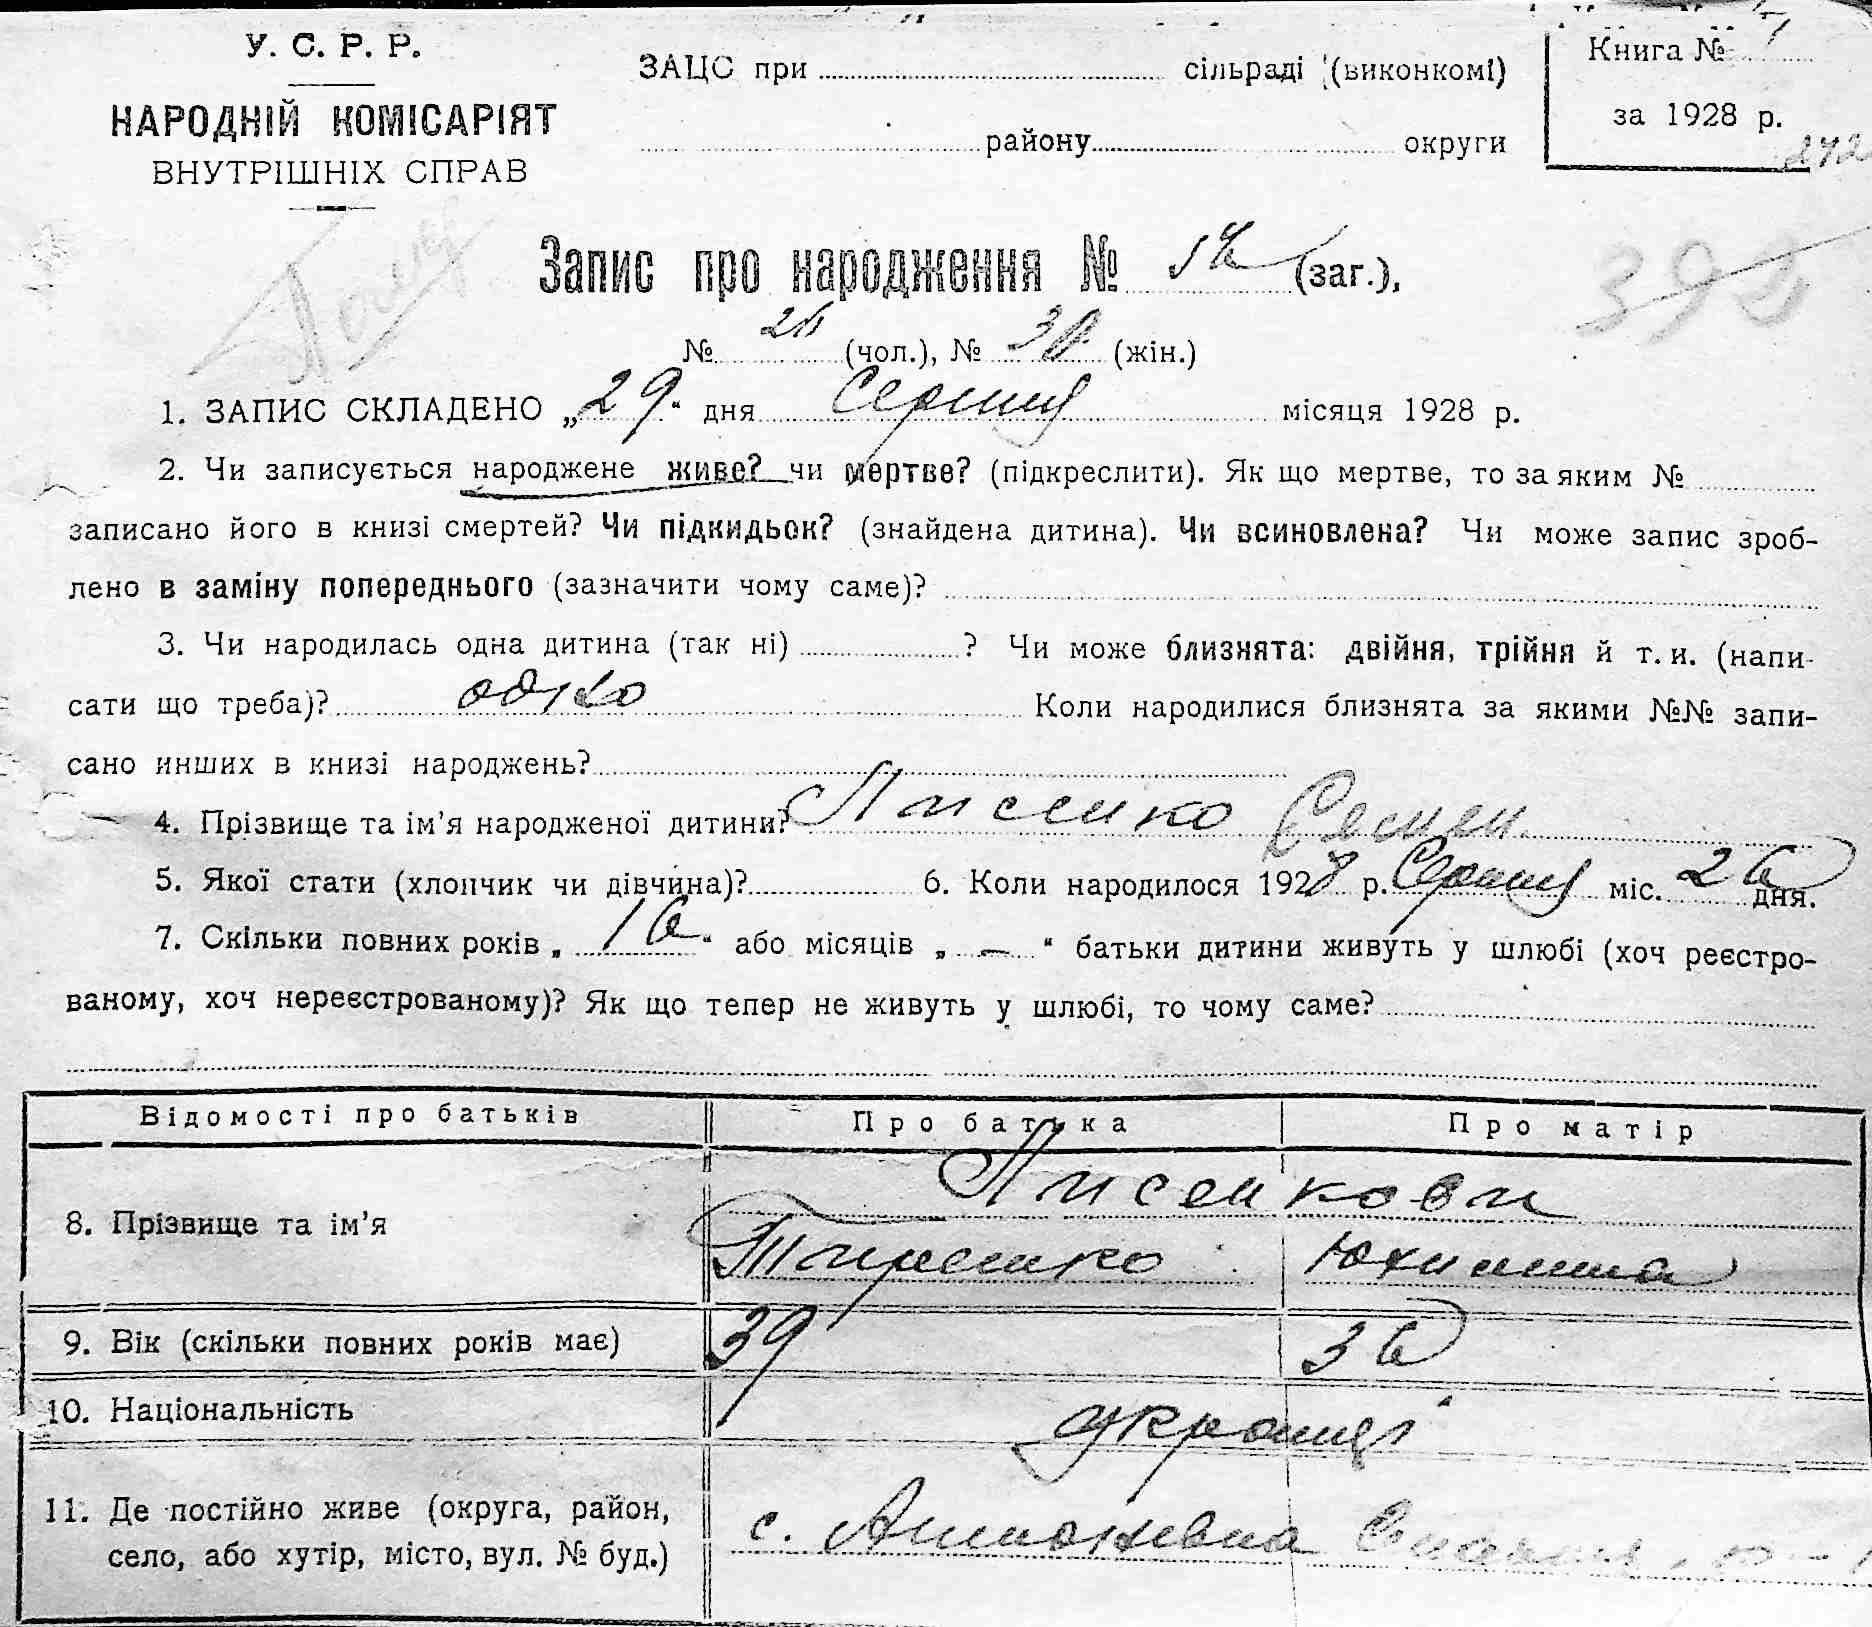 У. С. Р. Р.
НАРОДНІЙ КОМІСАРІЯТ
ВНУТРІШНІХ СПРАВ
ЗАЦС при сільраді (виконкомі)
району округи
Книга №
за 1928 р.
Запис про народження № (заг.),
392
№ (чол.), № (жін.)
1. ЗАПИС СКЛАДЕНО „29“ дня Серпня місяця 1928 р.
2. Чи записується народжене живе? чи мертве? (підкреслити). Як що мертве, то за яким №
записано його в книзі смертей? Чи підкидьок? (знайдена дитина). Чи всиновлена? Чи може запис зроб-
лено в заміну попереднього (зазначити чому саме)?
3. Чи народилась одна дитина (так ні) ? Чи може близнята: двійня, трійня й т. и. (напи-
сати що треба)? одно Коли народилися близнята за якими №№ запи-
сано инших в книзі народжень?
4. Прізвище та ім’я народженої дитини? Лисенко Семен
5. Якої стати (хлопчик чи дівчина)? 6. Коли народилося 1928 р. Серпня міс. 26 дня.
7. Скільки повних років „16“ або місяців „—“ батьки дитини живуть у шлюбі (хоч реєстро-
ваному, хоч нереєстрованому)? Як що тепер не живуть у шлюбі, то чому саме?
Відомості про батьків Про батька Про матір
Лисенкови
8. Прізвище та ім’я
Юхимина
9. Вік (скільки повних років має) 39 36
10. Національність українці
11. Де постійно живе (округа, район,
село, або хутір, місто, вул. № буд.)
с.